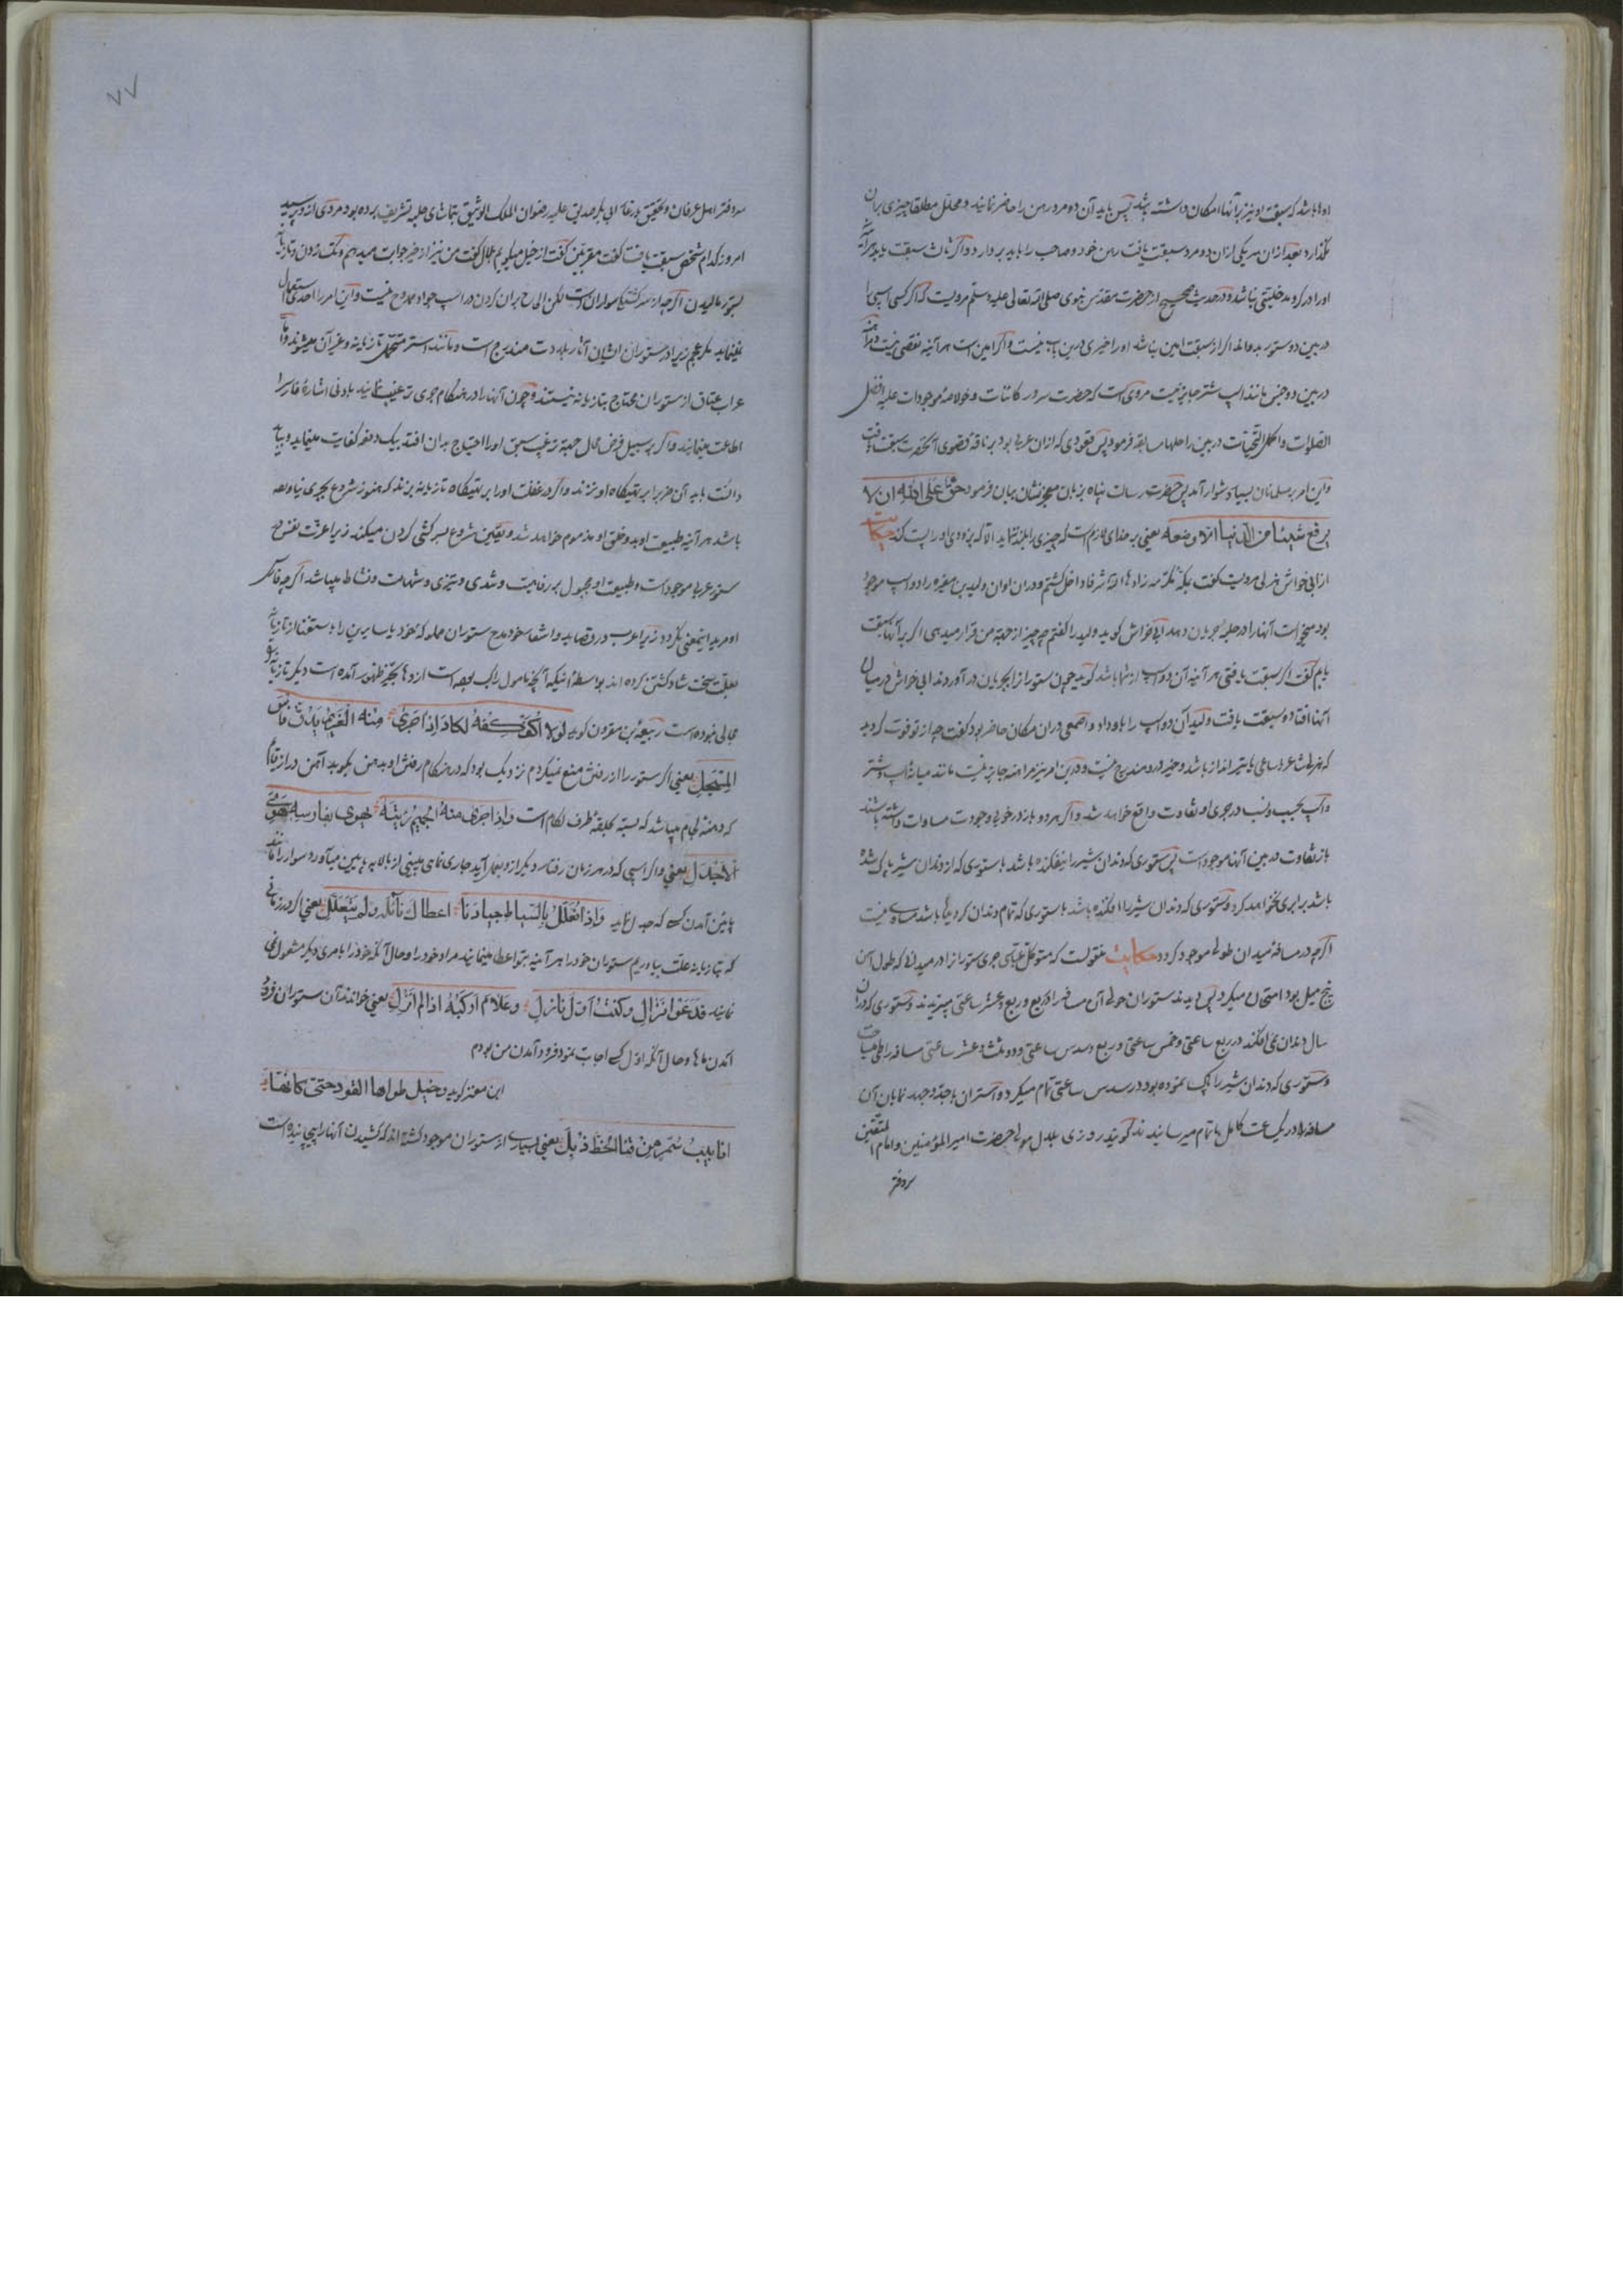 اولا باشد که سبقت او نیز بر آنها امکان داشته باشد پس باید آن دو مرد رهن را حاضر نمایند و محلل مطلقا چیزی بران
نگذارد بعد ازان هر یکی ازان دو مرد سبقت یافت رهن خود و صاحب را باید بردارد و اگر ثالث سبقت یابد هرآینه
او را در گرو مدخلیتی نباشد و در حدیث صحیح از حضرت مقدس نبوی صلی الله تعالی علیه وسلم مرویست که اگر کسی اسبی را
در بین دو ستور بدواند اگر از سبقت امین نباشد او را خیری درین باب نیست و اگر امین است هرآینه نقصی نیست و مراهنه
در بین دو جنس مانند اسب و شتر جایز نیست مروی است که حضرت سرور کائنات و خلاصهٔ موجودات علیه افضل
الصلوات و اکمل التحیات در بین راحلها مسابقه فرمود پس قعودی که ازان عربا بود بر ناقه قصوی آنحضرت سبقت یافت
و این امر بر مسلمانان بسیار دشوار آمد پس حضرت رسالت پناه بزبان معجز نشان بیان فرمود حق علی الله ان لا
یرفع شیئا من الدنیا الا وضعه یعنی بر خدای لازم است که چیزی را بلند ننماید الا آنکه بزودی او را پست کند حکایت
از ابی خراش هذلی مرویست گفت بمکه مکرمه زادها الله شرفا داخل گشتم و دران اوان ولید بن مغیره را دو اسب موجود
بود میخواست آنها را در حلبه بجریان دهد ابی خراش گوید ولید را گفتم چه چیز از جهة من قرار میدهی اگر بر آنها سبقت
یابم گفت اگر سبقت یافتی هرآینه آن دو اسب ازشما باشد گوید چون ستور را بجریان در آوردند ابی خراش در میان
آنها افتاده سبقت یافت ولید آن دو اسب را باو داد و اصمعی دران مکان حاضر بود گفت چه از تو فوت گردید
که هزلت عدو ساعی یا تیر انداز باشد و خیر در و مندرج نیست و درین امر نیز مراهنه جایز نیست مانند میانهٔ اسب و شتر
و اسب نجیب و نسب در جری او تفاوت واقع خواهد شد و اگر هر دو باز در خوبی و جودت مساوات داشته باشند
باز تفاوت در بین آنها موجود است پس ستوری که دندان شیر را نیفکنده باشد با ستوری که از دندان شیر پاک شده
باشد برابری نخواهد کرد و ستوری که دندان شیر را افکنده باشد با ستوری که تمام دندان گردیده باشد مساوی نیست
اگرچه در مسافه میدان طولی موجود گردد حکایت منقولست که متوکل عباسی جری ستور را در میدانی که طول آن
پنج میل بود امتحان میکرد پس دیدند ستوران حولی آن مسافه را در ربع و ربع و عشر ساعتی میبریدند و ستوری که دران
سال دندان می افکند در ربع ساعتی و خمس ساعتی و ربع و سدس ساعتی و دو ثلث و عشر ساعتی مسافه را طی میساخت
و ستوری که دندان شیر را پاک نموده بود در سدس ساعتی تمام میکرد و استران با جد و جهد نمایان آن
مسافه را در یک ساعت کامل باتمام میرسانیدند گویند روزی بلال مولی حضرت امیر المؤمنین و امام المتقین
سردفتر
۷۷
سردفتر اهل عرفان و تحقیق ورثه ابی بکر صدیق علیه رضوان الملک الوثیق بتماشای حلبه تشریف برده بود مردی ازو پرسید
امروز کدام شخص سبقت یافت گفت مقربین گفت از خیل میگویم بلال گفت من نیز از خیر جوابت میدهم و تک زدن و تازیانه
بستور مالیدن اگرچه از سرکشیها سواران است لکن الی ح بران کردن در اسب جواد ممدوح نیست و این امر را احدی استعمال
نمینماید مگر عجم زیرا در ستوران ایشان آثار بلادت مندرج است و مانند استر متحمل تازیانه و غیر آن میشوند و اما
عراب عتاق از ستوران محتاج بتازیانه نیستند و چون آنها را در هنگام جری ترغیب نمایند بادنی اشارهٔ فارس را
اطاعت مینمایند و اگر بر سبیل فرض محال جهة ترغیب سبق او را احتیاج بدان افتد بیک دفعه کفایت مینماید و بباید
دانست باید آن ضرب را بر تهیگاه او نزند و اگر در غفلت او را بر تهیگاه تازیانه بزند که هنوز شروع بجری نیاورده
باشد هرآینه طبیعت او بد و خلق او مذموم خواهد شد و یقین شروع بسرکشی کردن میکند زیرا عزت نفس در
ستور عربا موجود است و طبیعت او مجبول بر رفاهیت و شدی و تیزی و شهامت و نشاط میباشد اگرچه فارس
او مرید اینمعنی نگردد زیرا عرب در قصاید و اشعار خود مدح ستوران مملوکه خود یا سایرین را باستغنا از تازیانه
بعلت سخت شادگشتن کرده اند بواسطهٔ اینکه آنچه مامول راکب بوده است از و ها بحیز ظهور آمده است دیگر تازیانه و
محالی نبوده است ربیعة بن مقرون گوید لولا اکفکفه لکاد اذا جری منه العزیم یدق فاس
المسحل یعنی اگر ستور را از رفتن منع نمیکردم نزدیک بود که در هنگام رفتن او بدهن بکوبد آهن دراز قائم
که دهنه لجام میباشد که بسته بحلقه طرف لگام است و اذا جری منه الحمیم رئیته یهوی بفارسه هوی
الاجدل یعنی و اگر اسبی که در هر زمان رفتار دیگر ازو بعمل آید جاری نمای می بینی از بالا به پایین میآورد سوار را مانند
پائین آمدن کسی که جدل نماید و اذا تعلل بالسیاط جیادنا اعطاک نائله ولم یتعلل یعنی اگر در زمانی
که بتازیانه علت بیاوریم ستوران خود را هرآینه بتو اعطا مینمایند مراد خود را و حال آنکه خود را بامری دیگر مشغول نمی
نمایند فدعوا نزال و کنت اول نازل و علام ارکبه اذا لم انزل یعنی خواندند آن ستوران فرود
آمدن ها و حال آنکه اول کسی اجابت نمود فرود آمدن من بودم
ابن معتز گوید و خیل طواها القود حتی کانها
انابیب سمر من قنا الخط ذبل یعنی بسیاری از ستوران موجود گشته اند که کشیدن آنها را پیچانیده است